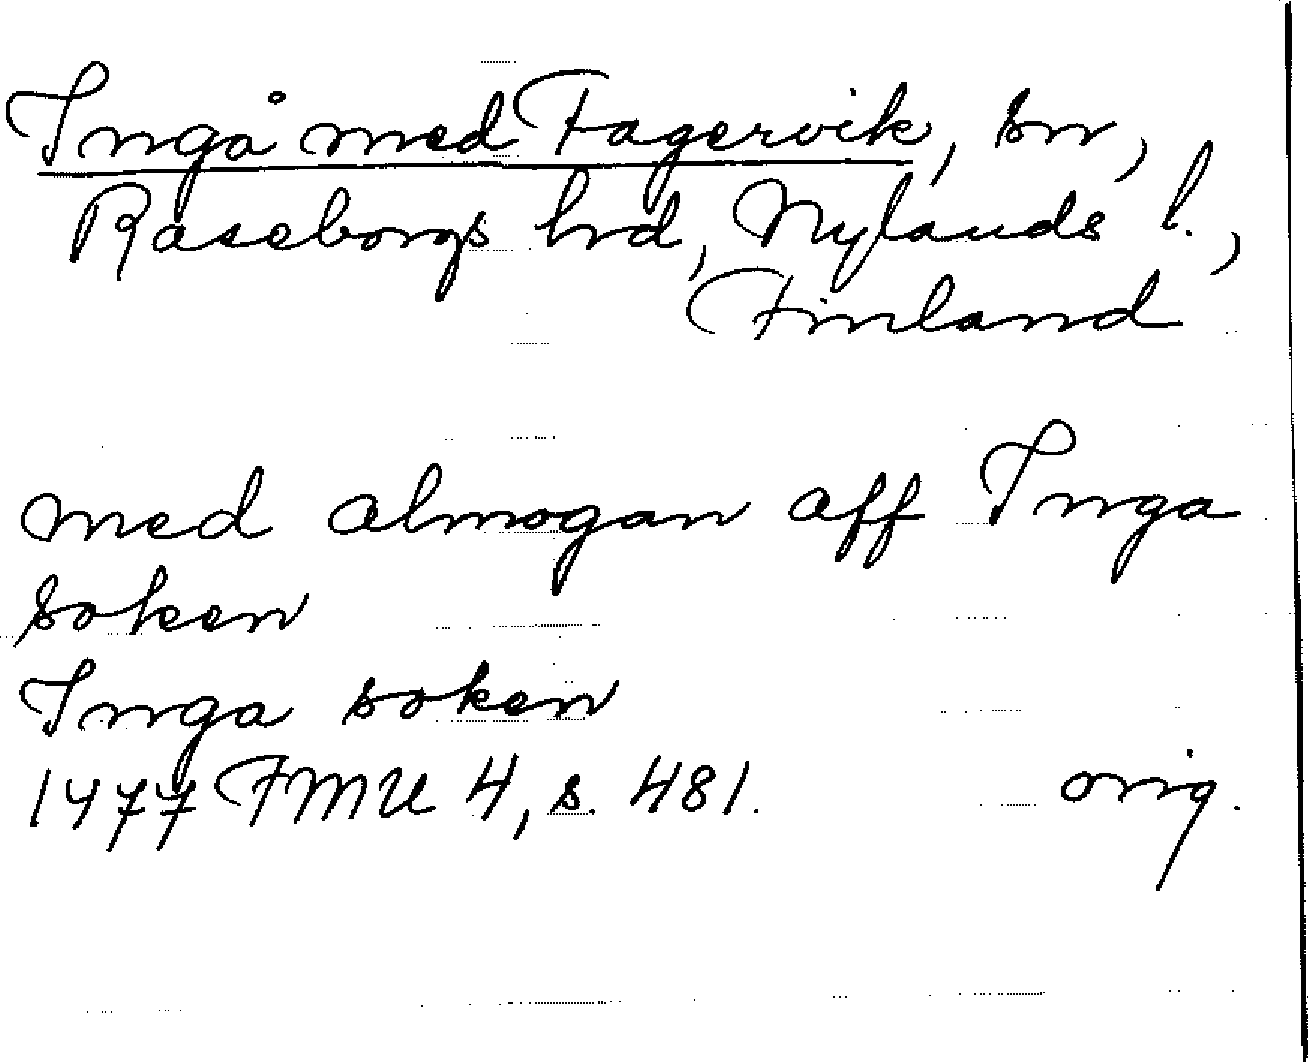 Ingå med Fagervik, sn,
Raseborgs hrd, Nylands l.,
Finland
med almogan aff Inga
soken
Inga soken
1477 FMU 4, s. 481. orig.